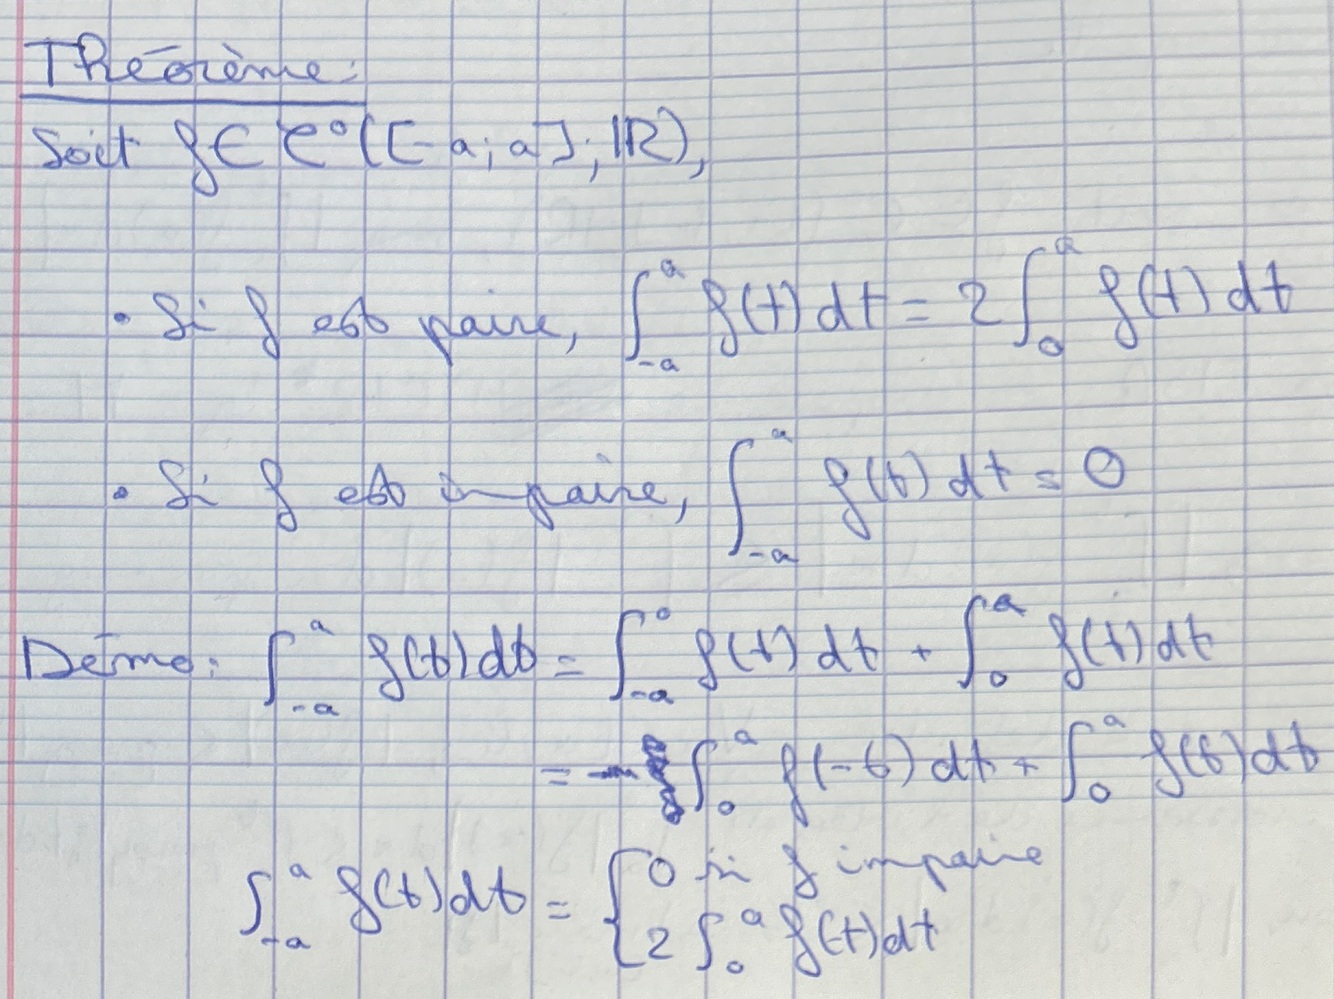 Théorème :
Soit f ∈ C⁰([-a; a]; ℝ),
• Si f est paire, ∫_{-a}^{a} f(t) dt = 2 ∫_{0}^{a} f(t) dt
• Si f est impaire, ∫_{-a}^{a} f(t) dt = 0
Démo : ∫_{-a}^{a} f(t) dt = ∫_{-a}^{0} f(t) dt + ∫_{0}^{a} f(t) dt
= - ∫_{0}^{a} f(-t) dt + ∫_{0}^{a} f(t) dt
∫_{-a}^{a} f(t) dt = { 0 si f impaire
2 ∫_{0}^{a} f(t) dt